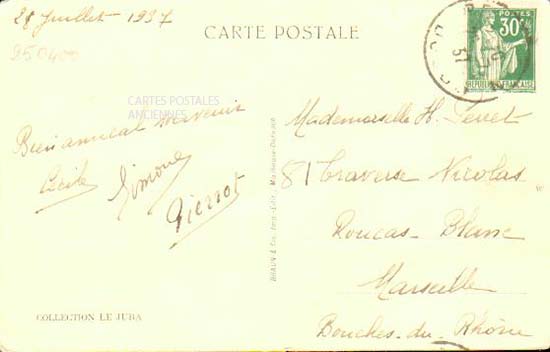 28 Juillet 1937
CARTE POSTALE
950400
CARTES POSTALES
ANCIENNES
Bien amical souvenir
Cécile
Simone
Pierrot
COLLECTION LE JURA
BRAUN & Cie, Imp.-Édit., Mulhouse-Dornach
POSTES
30c
REPUBLIQUE FRANÇAISE
37
Mademoiselle H. Perret
81 Traverse Nicolas
Roucas-Blanc
Marseille
Bouches-du-Rhône